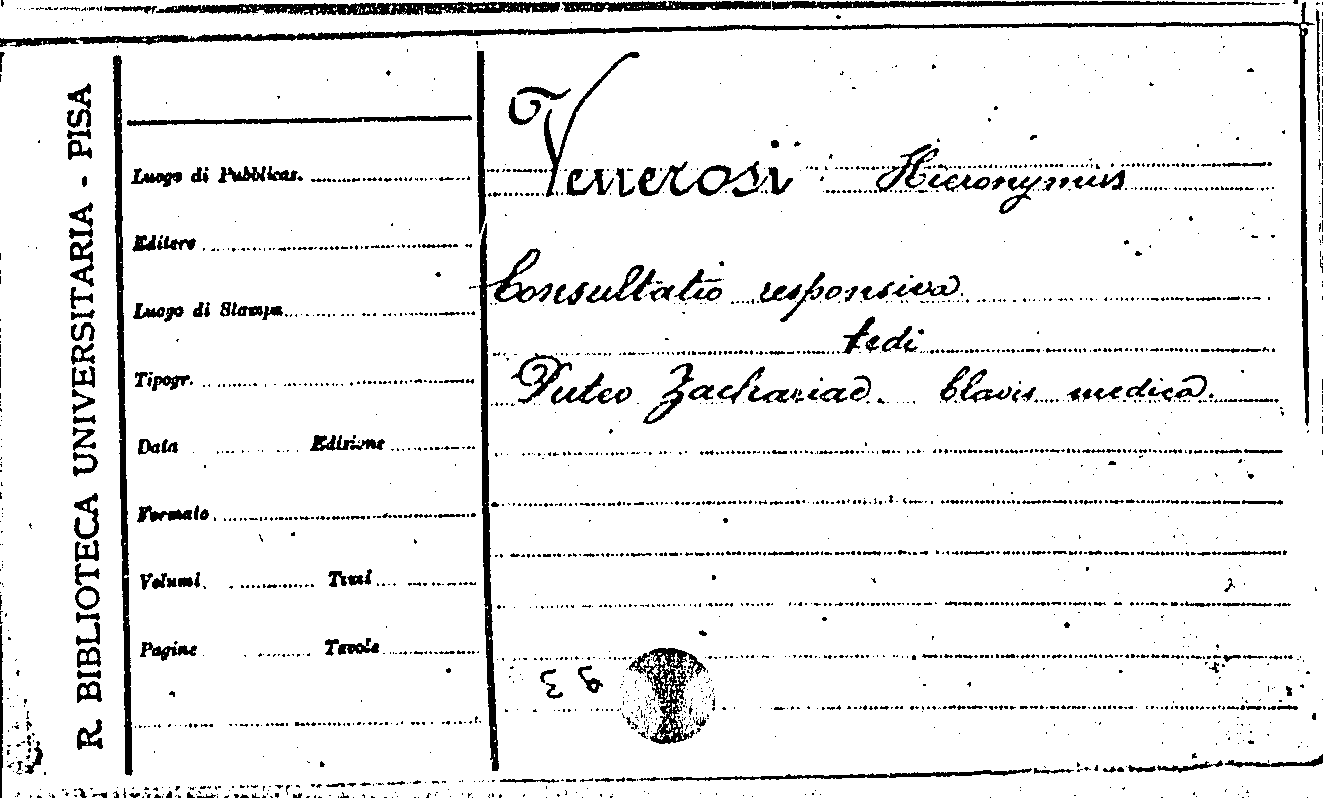 R. BIBLIOTECA UNIVERSITARIA - PISA
Luogo di Pubblicaz.
Editore
Luogo di Stampa
Tipogr.
Data Edizione
Formato
Volumi Tomi
Pagine Tavole
Venerosi Hieronymus
Consultatio responsiva
vedi
Puteo Zachariae. Clavis medica.